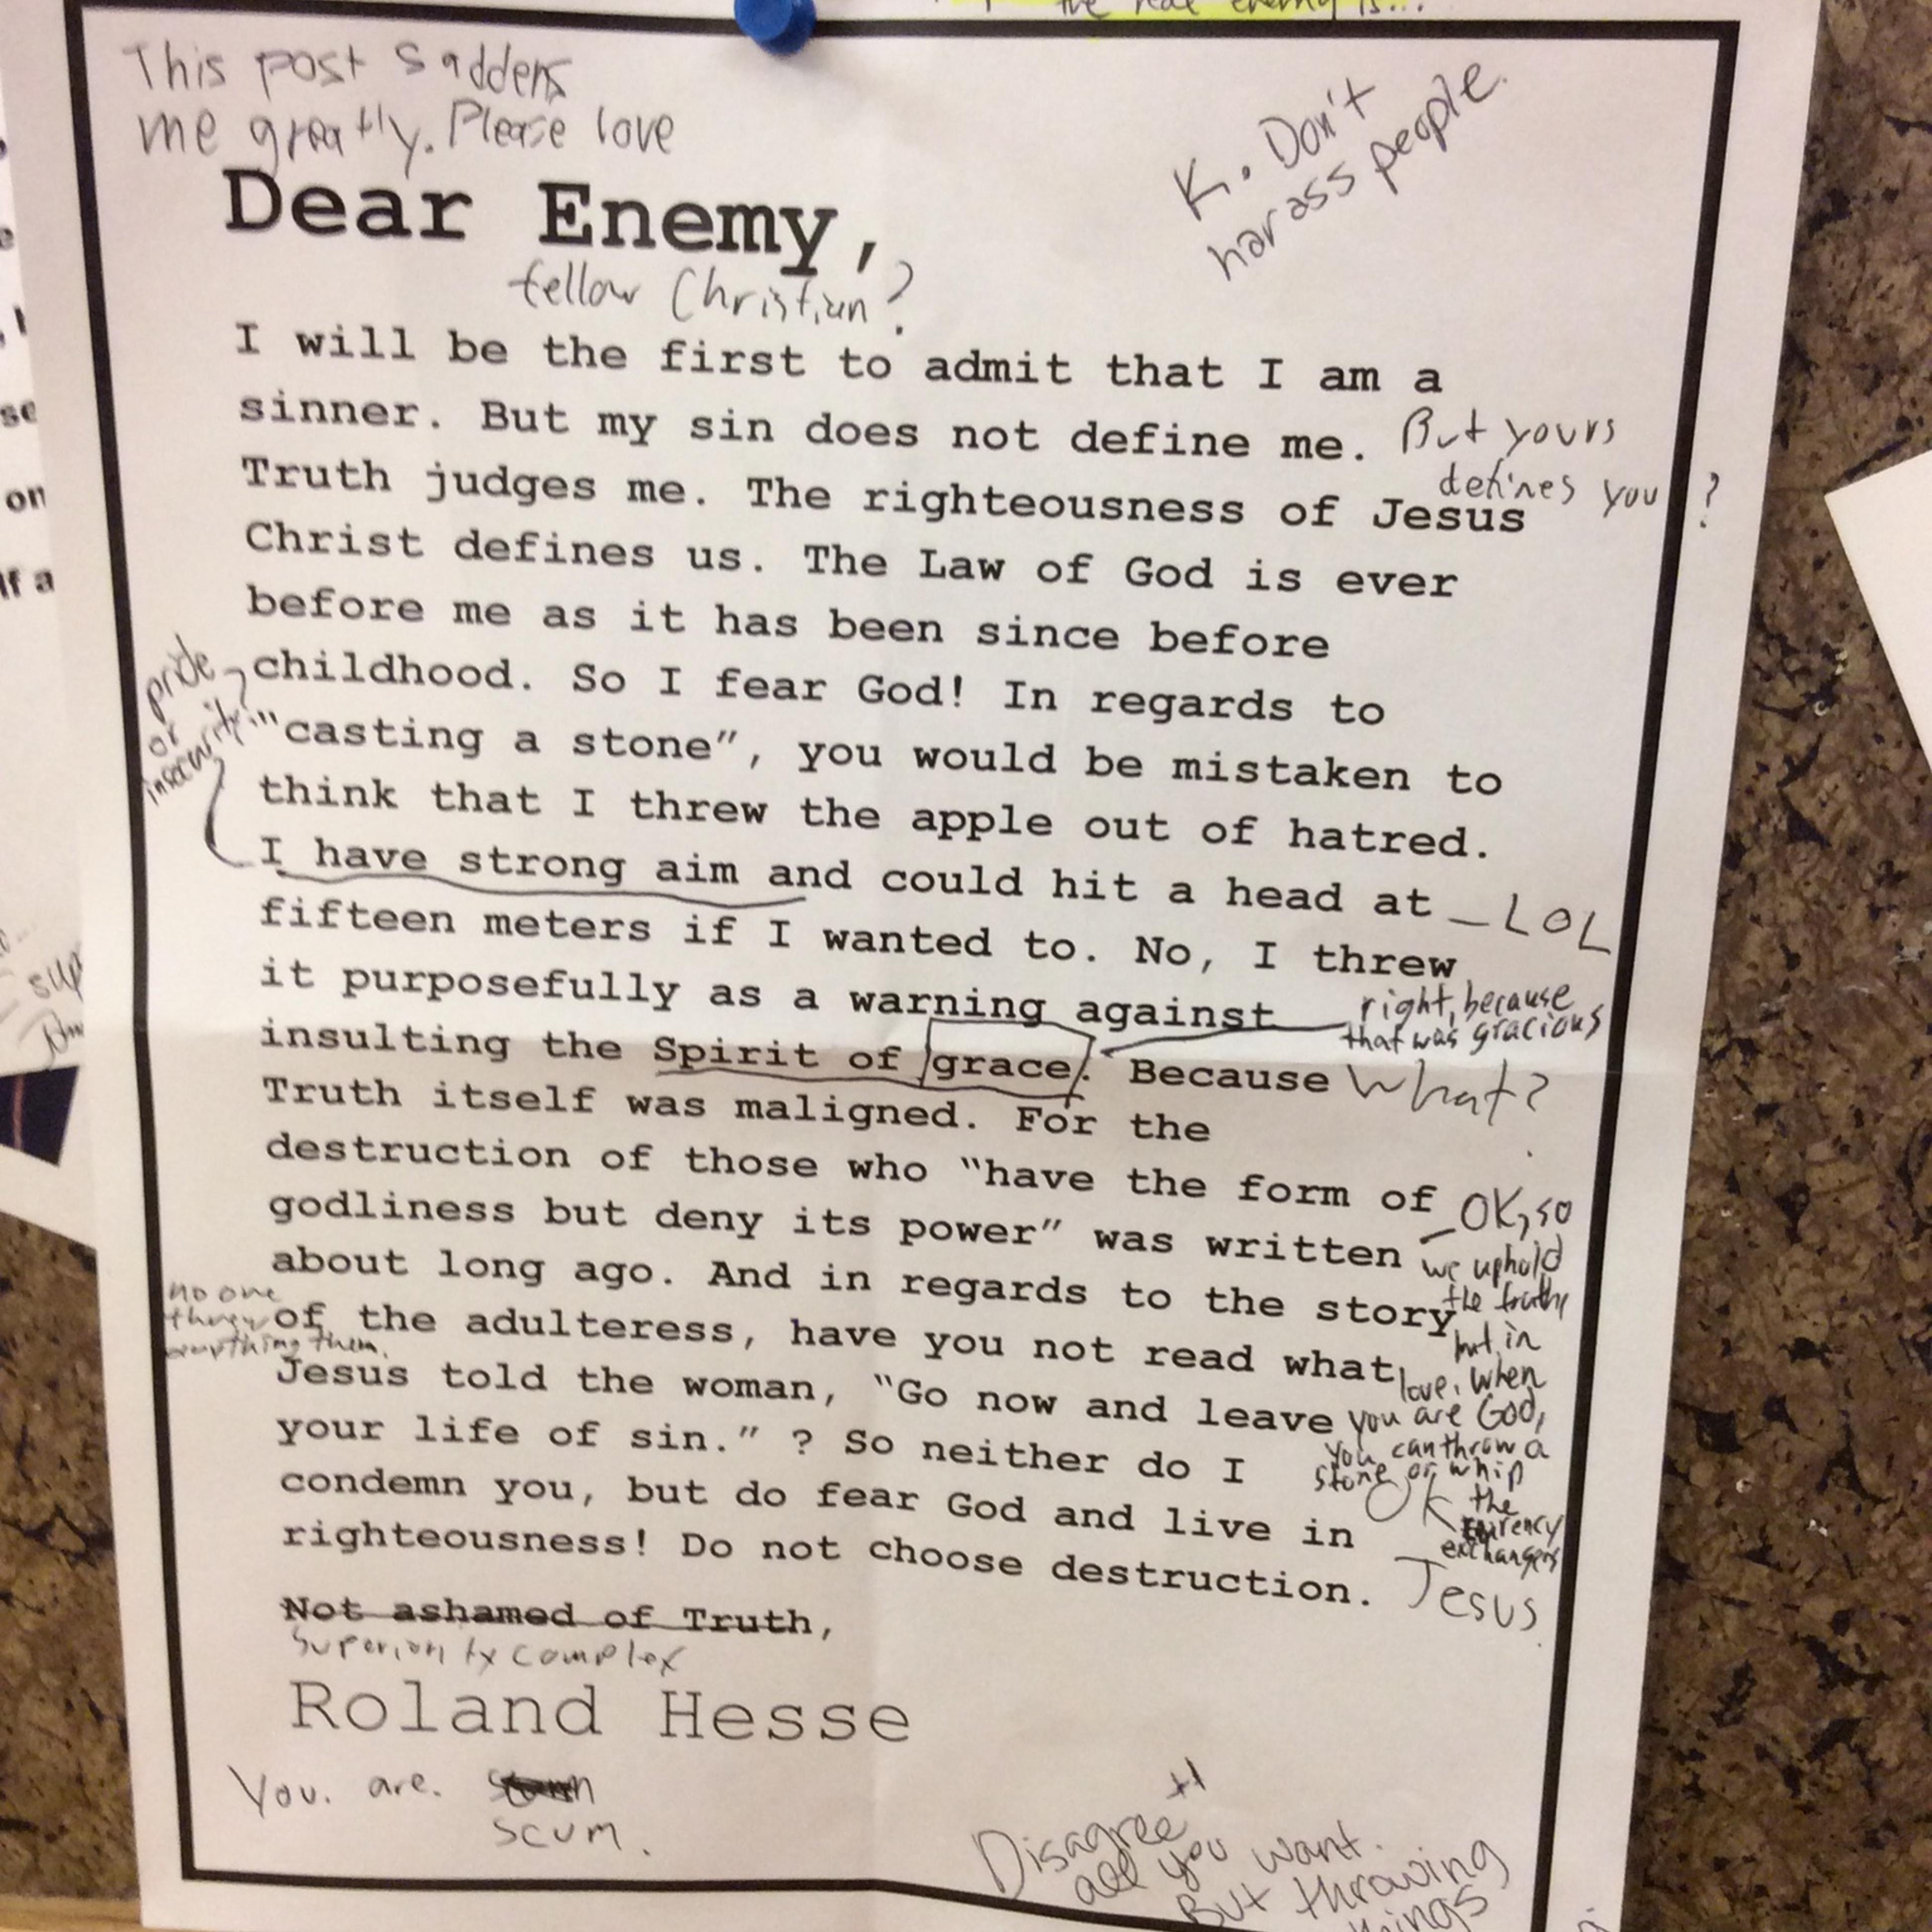 the real enemy is...
This post saddens
me greatly. Please love
K. Don't
harass people.
Dear Enemy,
fellow Christian?
I will be the first to admit that I am a
sinner. But my sin does not define me. But yours
defines you?
Truth judges me. The righteousness of Jesus
Christ defines us. The Law of God is ever
before me as it has been since before
pride
or
insecurity?
childhood. So I fear God! In regards to
"casting a stone", you would be mistaken to
think that I threw the apple out of hatred.
I have strong aim and could hit a head at LOL
fifteen meters if I wanted to. No, I threw
it purposefully as a warning against
right, because
that was gracious
insulting the Spirit of grace. Because What?
Truth itself was maligned. For the
destruction of those who "have the form of
godliness but deny its power" was written
about long ago. And in regards to the story
of the adulteress, have you not read what
Jesus told the woman, "Go now and leave
your life of sin." ? So neither do I
condemn you, but do fear God and live in
righteousness! Do not choose destruction.
OK, so
we uphold
the truth,
but in
love. When
you are God,
you can throw a
stone or whip
the
currency
exchangers
OK
Jesus
no one
threw
anything them.
Not ashamed of Truth,
Superiority complex
Roland Hesse
You. are.
scum.
Disagree +1
all you want.
But throwing
things